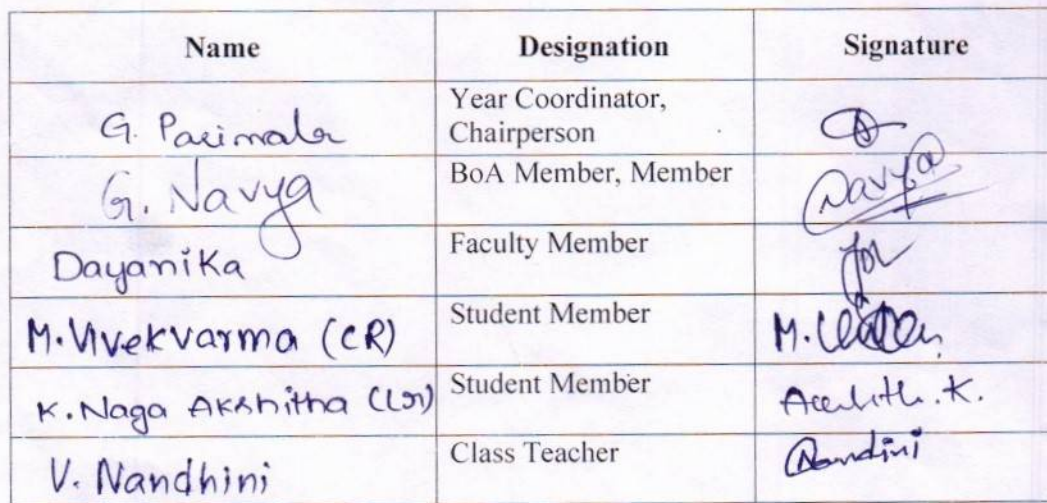 Name Designation Signature
G. Parimala Year Coordinator,
Chairperson
G. Navya BoA Member, Member Navya
Dayanika Faculty Member
M. Vivekvarma (CR) Student Member M.
K. Naga Akshitha (LR) Student Member K.
V. Nandhini Class Teacher Nandini